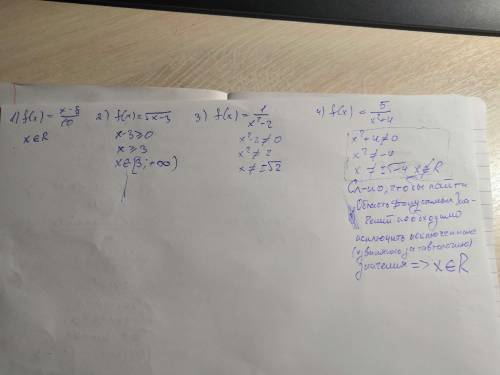 1) f(x) = x-8/10
x∈R
2) f(x) = √x-3
x-3≥0
x≥3
x∈[3;+∞)
3) f(x) = 1/x²-2
x²-2≠0
x²≠2
x≠±√2
4) f(x) = 5/x²+4
x²+4≠0
x²≠-4
x≠±√-4 x∉R
Сл-но, чтобы найти
Область допустимых зна-
чений необходимо
исключить исключённые
(извиняюсь за тавтологию)
значения => x∈R